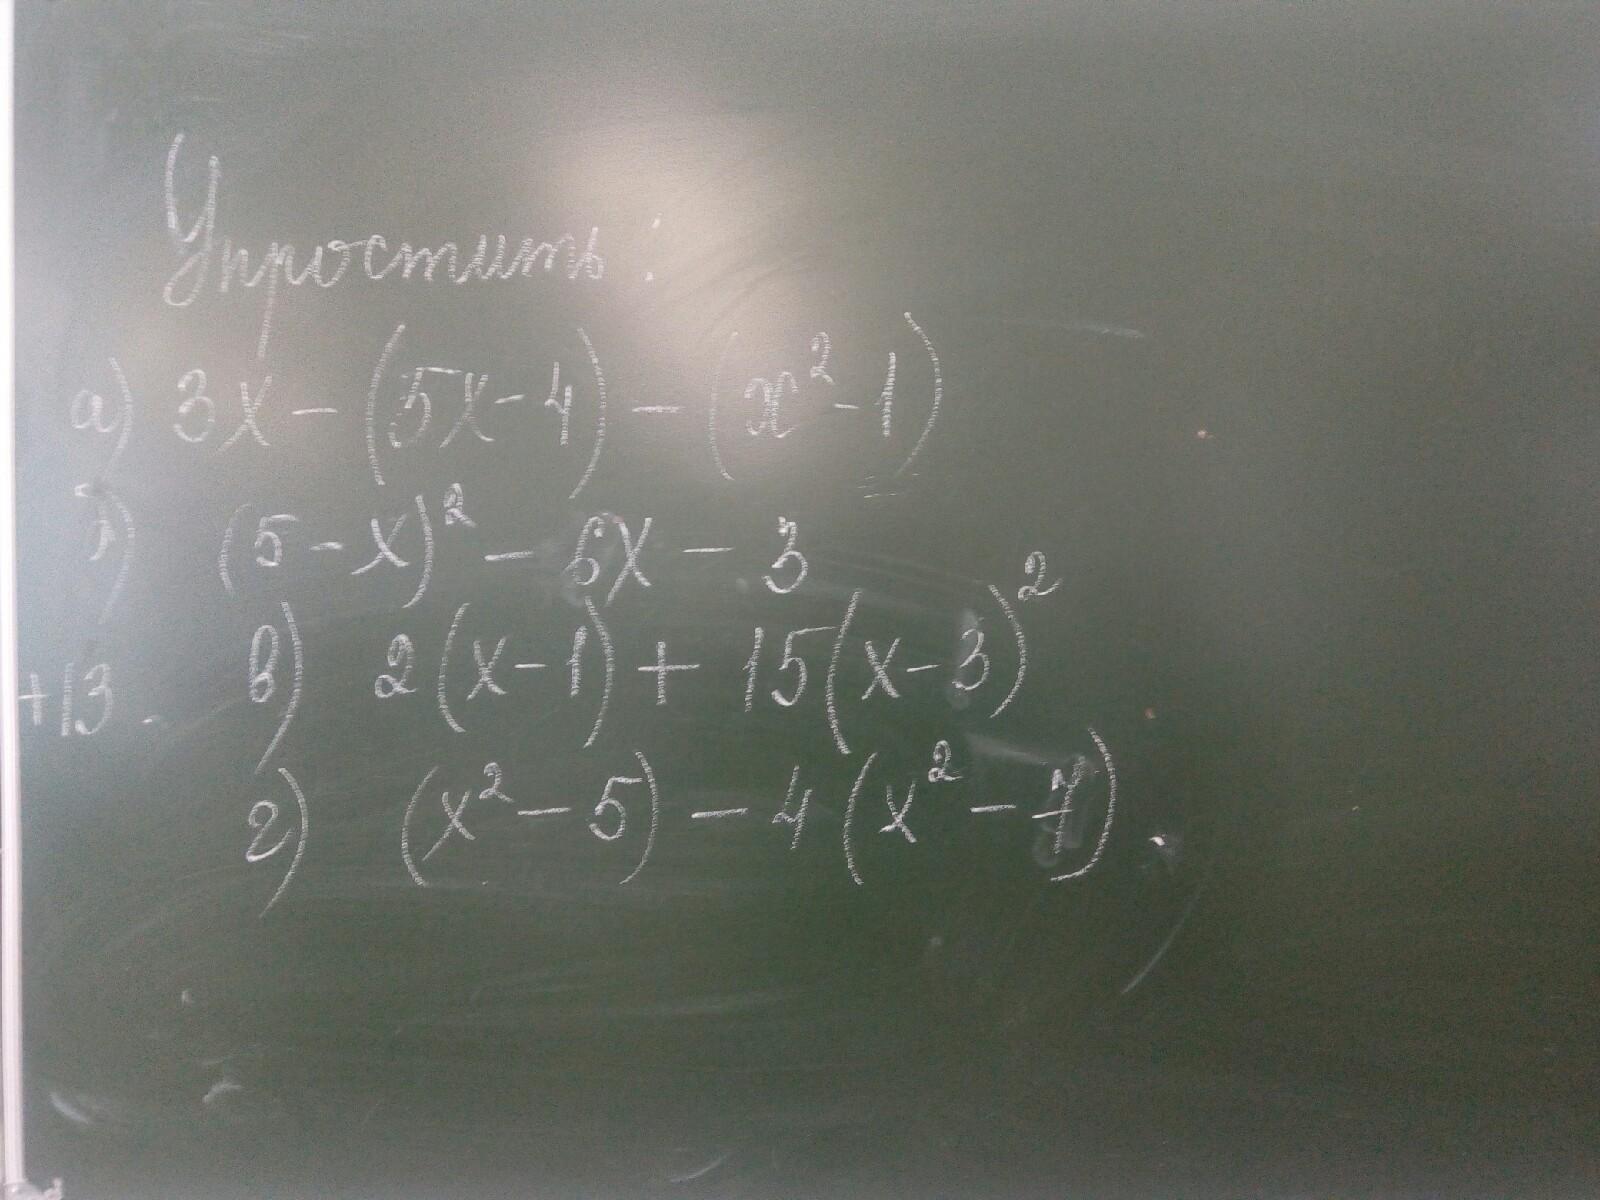 Упростить:
а) 3x - (5x - 4) - (x² - 1)
б) (5 - x)² - 6x - 3
в) 2(x - 1) + 15(x - 3)²
+13.
г) (x² - 5) - 4(x² - 7).